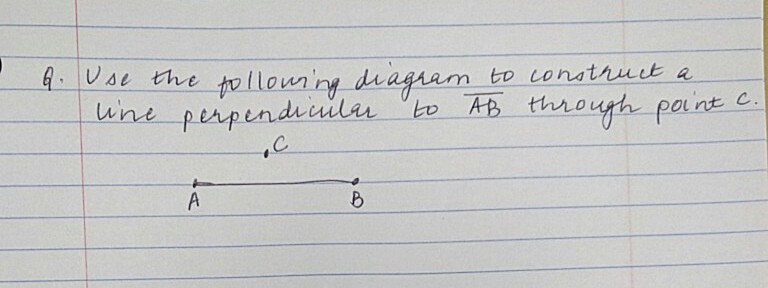 Q. Use the following diagram to construct a
line perpendicular to A̅B̅ through point C.
.C
A B